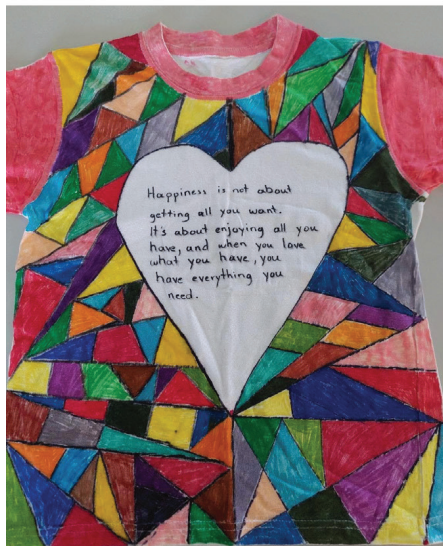 Happiness is not about
getting all you want.
It's about enjoying all you
have, and when you love
what you have, you
have everything you
need.